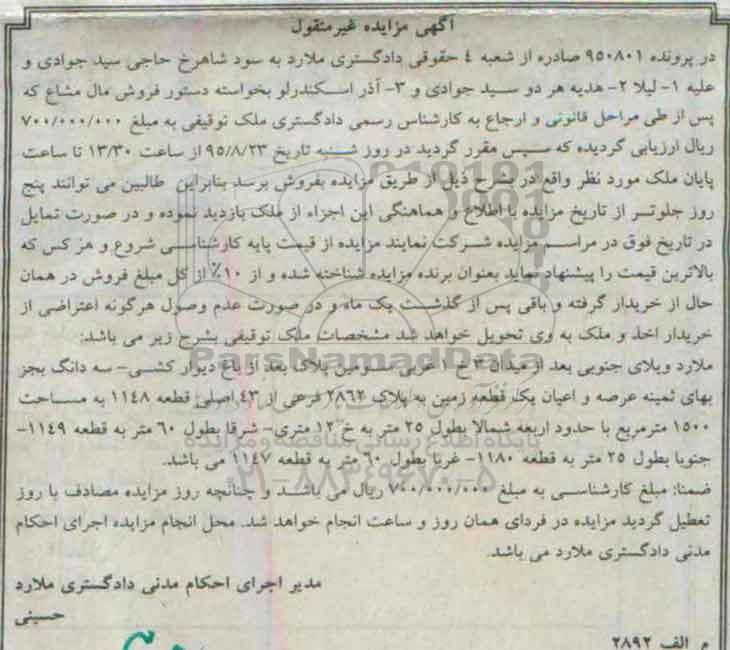 آگهی مزایده غیرمنقول
در پرونده ۹۵۰۸۰۱ صادره از شعبه ٤ حقوقی دادگستری ملارد به سود شاهرخ حاجی سید جوادی و
علیه ۱- لیلا ۲- هدیه هر دو سید جوادی و ۳- آذر اسکندرلو بخواسته دستور فروش مال مشاع که
پس از طی مراحل قانونی و ارجاع به کارشناس رسمی دادگستری ملک توقیفی به مبلغ ۷۰۰/۰۰۰/۰۰۰
ریال ارزیابی گردیده که سپس مقرر گردید در روز شنبه تاریخ ۹۵/۸/۲۳ از ساعت ۱۳/۳۰ تا ساعت
پایان ملک مورد نظر واقع در شرح ذیل از طریق مزایده بفروش برسد بنابراین طالبین می توانند پنج
روز جلوتر از تاریخ مزایده با اطلاع و هماهنگی این اجراء از ملک بازدید نموده و در صورت تمایل
در تاریخ فوق در مراسم مزایده شرکت نمایند مزایده از قیمت پایه کارشناسی شروع و هر کس که
بالاترین قیمت را پیشنهاد نماید بعنوان برنده مزایده شناخته شده و از ۱۰٪ از کل مبلغ فروش در همان
حال از خریدار گرفته و باقی پس از گذشت یک ماه و در صورت عدم وصول هرگونه اعتراضی از
خریدار اخذ و ملک به وی تحویل خواهد شد مشخصات ملک توقیفی بشرح زیر می باشد:
ParsNamadData
ملارد ویلای جنوبی بعد از میدان ۲ خ ۱ غربی سومین پلاک بعد از باغ دیوار کشی- سه دانگ بجز
بهای ثمینه عرصه و اعیان یک قطعه زمین به پلاک ۲۸۶۲ فرعی از ٤۳ اصلی قطعه ۱۱٤۸ به مساحت
۱۵۰۰ مترمربع با حدود اربعه شمالا بطول ۲۵ متر به خ ۱۲ متری- شرقا بطول ۶۰ متر به قطعه ۱۱٤۹-
پایگاه اطلاع رسانی مناقصه و مزایده
جنوبا بطول ۲۵ متر به قطعه ۱۱۸۰- غربا بطول ۶۰ متر به قطعه ۱۱٤۷ می باشد.
۰۲۱-۸۸۳۴۹۶۷۰-۵
ضمنا: مبلغ کارشناسی به مبلغ ۷۰۰/۰۰۰/۰۰۰ ریال می باشد و چنانچه روز مزایده مصادف با روز
تعطیل گردید مزایده در فردای همان روز و ساعت انجام خواهد شد. محل انجام مزایده اجرای احکام
مدنی دادگستری ملارد می باشد.
مدیر اجرای احکام مدنی دادگستری ملارد
حسینی
م الف ۲۸۹۲